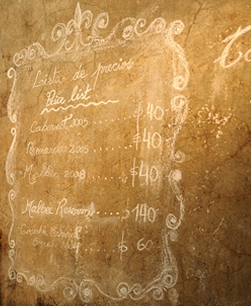 Lista de precios
Price list
Cabernet 2005 ..... $40
Bonarda 2005 ..... $40
Malbec 2008 ..... $40
Malbec Reserva ..... $140
$ 60